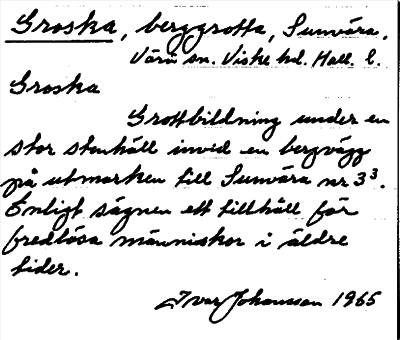 Groska, berggrotta, Sunvära,
Värö sn. Viske hd. Hall. l.
Groska
Grottbildning under en
stor stenhäll invid en bergvägg
på utmarken till Sunvära nr 3³.
Enligt sägnen ett tillhåll för
fredlösa människor i äldre
tider.
Ivar Johansson 1965